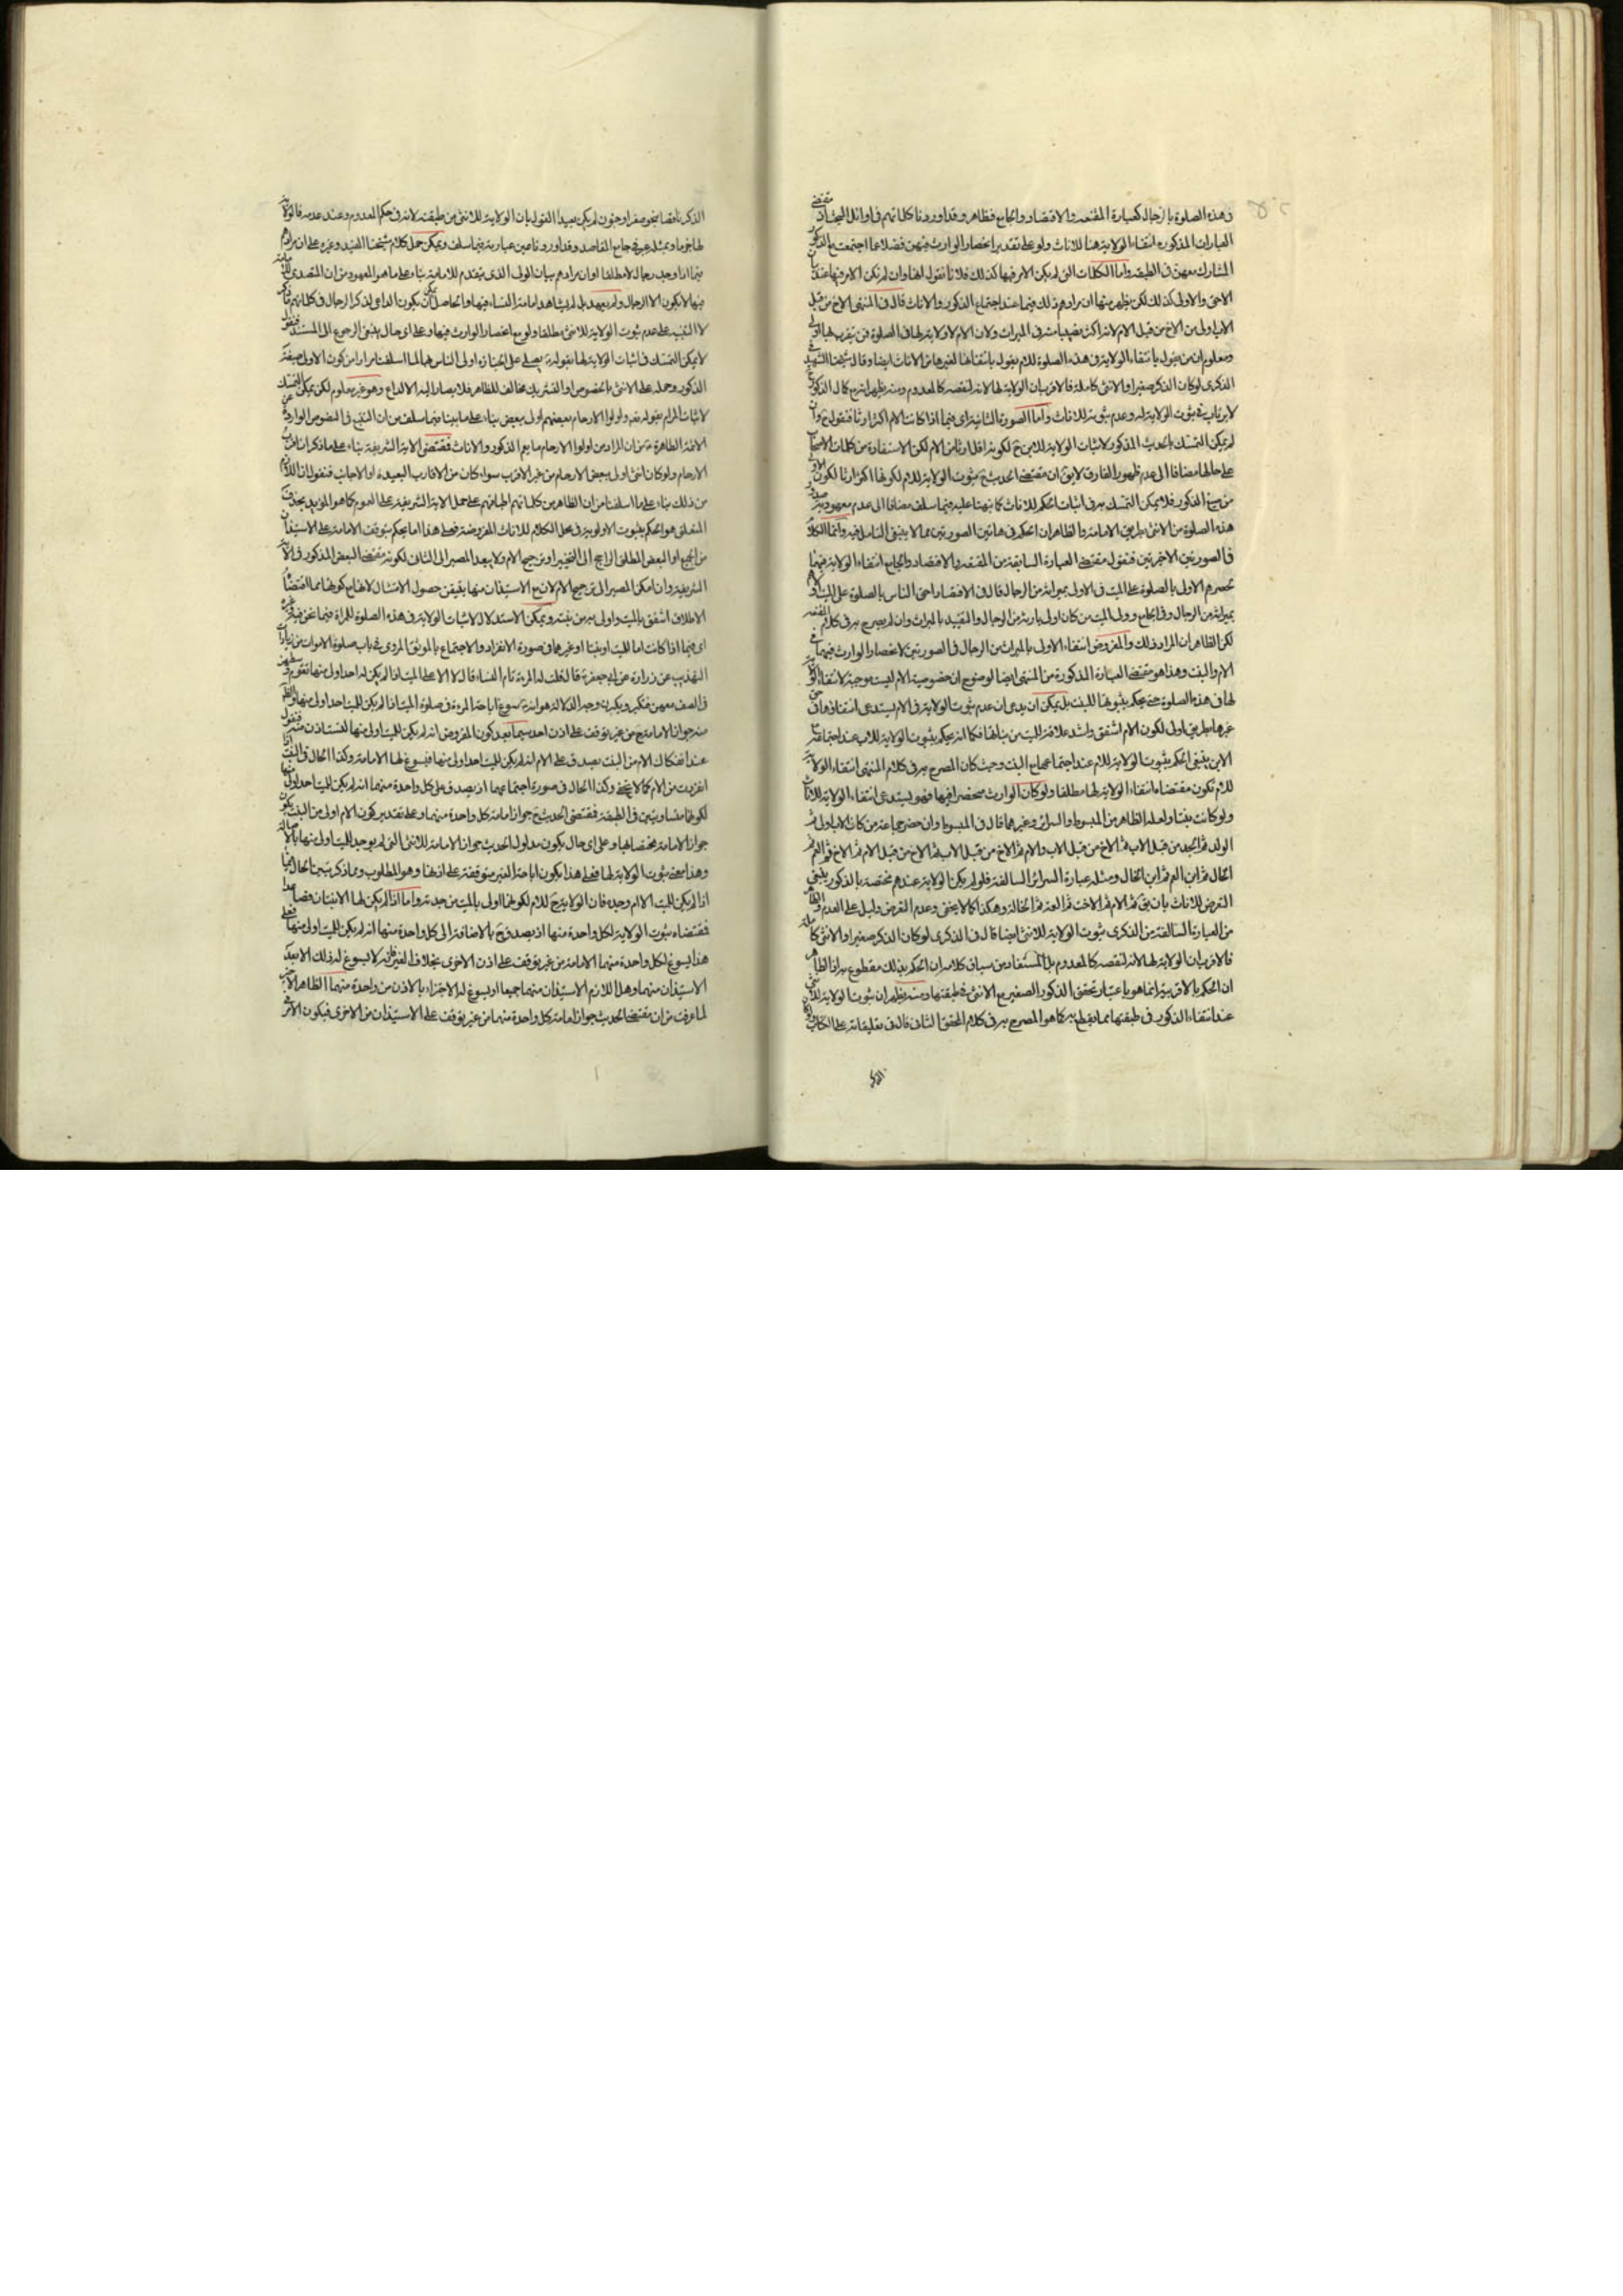 فى هذه الصلوة بالرجال كعبارة المقنعه والاقتصاد والجامع فظاهر وقد اوردنا كلماتهم فى اوائل المبحث اذ مقتضى
العبارات المذكورة انتفاء الولاية هنا للاناث ولو على تقدير انحصار الوارث فيهن فضلا عما اجتمعت مع الذكور
المشارك معهن فى الطبقة واما الكلمات التى لم يكن الامر فيها كذلك فلانا نقول انها وان لم تكن الامر فيها عند
الاخى والاولى كذلك لكن يظهر منها ان مرادهم ذلك فيما عند اجتماع الذكور والاناث قال فى المنتهى الاخ من قبل
الاب اولى من الاخ من قبل الام لانه اكثر نصيبا منه فى الميراث ولان الام لا ولاية لها فى الصلوة فمن يتقرب بها اولى
ومعلوم ان من يقول بانتفاء الولاية فى هذه الصلوة للام يقول بانتفائها لغيرها من الاناث ايضا وقال شيخنا الشهيد فى
الذكرى لو كان الذكر صغيرا والانثى كاملة فالاقرب ان الولاية لها لانه لنقصه كالمعدوم ومنه يظهر انه مع كمال الذكور
لا يرتاب فى ثبوت الولاية له وعدم ثبوته للاناث واما الصورة الثانية اى فيما اذا كانت الام اكثر ارثا فنقول ح وان
لم يمكن التمسك بالحديث المذكور لاثبات الولاية للابن ح لكونه اقل ارثا من الام لكن الاستفادة من كلمات الاصحاب
على حالها مضافا الى عدم ظهور الفارق لا يق ان مقتضى الحديث ح ثبوت الولاية للام لكونها اكثر ارثا لكون الاولى
من صيغ الذكور فلا يمكن التمسك به فى اثبات الحكم للاناث كما نبهنا عليه فيما سلف مضافا الى عدم معهودية صدور
هذه الصلوة من الانثى بطريق الامامة والظاهر ان الحكم فى هاتين الصورتين مما لا ينبغى التامل فيه وانما الكلام
فى الصورتين الاخيرتين فنقول مقتضى العبارة السابقة من المقنعه والاقتصاد والجامع انتفاء الولاية فيهما
لحصرهم الاولى بالصلوة على الميت فى الاولى بميراثه من الرجال قال فى الاقتصاد احق الناس بالصلوة على الميت اولاهم
بميراثه من الرجال وفى الجامع وولى الميت من كان اولى بارثه من الرجال والتقييد بالميراث وان لم يصرح به فى كلام المقنعه
لكن الظاهر ان المراد ذلك والمفروض انتفاء الاولى بالميراث من الرجال فى الصورتين لانحصار الوارث فيهما فى
الام والبنت وهذا هو مقتضى العبارة المذكورة من المنتهى ايضا لوضوح ان خصوصية الام ليست موجبة لانتفاء الولاية
لها فى هذه الصلوة حتى يحكم بثبوتها للبنت بل يمكن ان يدعى ان عدم ثبوت الولاية فى الام يستدعى انتفاؤها فى حق
غيرها بطريق اولى لكون الام اشفق واشد علاقة للميت من بناتها فكما انه يحكم بثبوت الولاية للاب عند اجتماعه مع
الابن ينبغى الحكم بثبوت الولاية للام عند اجتماعها مع البنت وحيث كان المصرح به فى كلام المنتهى انتفاء الولاية
للام تكون مقتضاه انتفاء الولاية لها مطلقا ولو كان الوارث منحصرا فيها فهو يستدعى انتفاء الولاية للاناث
ولو كانت بنتا ولعله الظاهر من المبسوط والسرائر وغيرهما قال فى المبسوط وان حضر جماعة من كان الاب اولى ثم
الولد ثم الجد من قبل الاب ثم الاخ من قبل الاب والام ثم الاخ من قبل الاب ثم الاخ من قبل الام ثم العم ثم
الخال ثم ابن العم ثم ابن الخال ومثله عبارة السرائر السالفة فلو لم يكن الولاية عندهم مختصة بالذكور ينبغى
التعرض للاناث بان يق ثم الام ثم الاخت ثم العمة ثم الخالة وهكذا كما لا يخفى وعدم التعرض دليل على العدم والظاهر
من العبارة السالفة من الذكرى ثبوت الولاية للانثى ايضا قال فى الذكرى لو كان الذكر صغيرا والانثى كاملة
فالاقرب ان الولاية لها لانه لنقصه كالمعدوم بل المستفاد من سياق كلامه ان الحكم بذلك مقطوع به اذ الظاهر
ان الحكم بالاقربية انما هو باعتبار تحقق الذكور الصغير مع الانثى فى طبقتها ومنه يظهر ان ثبوت الولاية للانثى
عند انتفاء الذكور فى طبقتها مما يقطع به كما هو المصرح به فى كلام المحقق الثانى قال فى تعليقاته على الكتاب
الذكر ناقصا بنحو صغر او جنون لم يكن بعيدا القول بان الولاية للانثى من طبقته لانه فى حكم المعدوم وعند عدمه فالولاية
لها جزما وبمثله عبر فى جامع المقاصد وقد اوردنا عين عبارته فيما سلف ويمكن حمل كلام شيخنا المفيد وغيره على ان مرادهم
فيما اذا وجد رجال لا مطلقا او ان مرادهم بيان الولى الذى يتقدم للامامة بناء على ما هو المعهود من ان المتصدى للامامة
فيها لا يكون الا الرجال ولم يعهد بل لم يشاهد امامة النساء فيها والحاصل يمكن ان يكون الداعى لذكر الرجال فى كلماتهم ما ذكر
لا التنبيه على عدم ثبوت الولاية للانثى مطلقا ولو مع انحصار الوارث فيها وعلى اى حال ينبغى الرجوع الى المستند فنقول
لا يمكن التمسك فى اثبات الولاية لها بقوله ع يصلى على الجنازة اولى الناس بها لما اسلفنا مرارا من كون الاولى صيغة
الذكور وحمله على الانثى بالخصوص او القدر المشترك مخالف للظاهر فلا يصار اليه الا لداع وهو غير معلوم لكن يمكن التمسك
لاثبات المرام بقوله تعه واولوا الارحام بعضهم اولى ببعض بناء على ما بينا فيما سلف من ان المتبع فى النصوص الواردة عن
الائمة الطاهرة ع من ان المراد من اولوا الارحام ما يعم الذكور والاناث فمقتضى الاية الشريفة بناء على ما ذكر ان اقرب
الارحام ولو كان انثى اولى ببعض الارحام من غير الاقرب سواء كان من الاقارب البعيدة او الاجانب فنقول ان اللازم
من ذلك بناء على ما اسلفنا من ان الظاهر من كلماتهم اطباقهم على حمل الاية الشريفة على العموم كما هو المؤيد بحذف
المتعلق هو الحكم بثبوت الاولوية فى محل الكلام للاناث المفروضة فعلى هذا اما يحكم بتوقف الامامة على الاستيذان
من الجميع او البعض المطلق الراجع الى التخيير او ترجيح الام ولا يبعد المصير الى الثانى لكونه مقتضى البعض المذكور فى الاية
الشريفة وان امكن المصير الى ترجيح الام لان مع الاستيذان منها يتيقن حصول الامتثال لانها مع كونها مما اقتضاه
الاطلاق اشفق بالميت واولى به من بنته ويمكن الاستدلال لاثبات الولاية فى هذه الصلوة للمراة فيما نحن فيه وغيره
اى فيما اذا كانت اما للميت او بنتا او غيرهما فى صورة الانفراد والاجتماع بالموثق المروى فى باب صلوة الاموات من زيادات
التهذيب عن زرارة عن ابى جعفر ع قال قلت له المرءة تام النساء قال لا الا على الميت اذا لم يكن له احد اولى منها تقوم وسطهن
فى الصف معهن فتكبر ويكبرن وجه الدلالة هو انه ع سوغ اباحة المرءة فى صلوة الميت اذا لم يكن للميت احد اولى منها والظاهر
منه جواز الامامة ح من غير توقف على اذن احد سيما بعد كون المفروض انه لم يكن للميت اولى منها لتستاذن منه فنقول
عند انفكاك الام من البنت يصدق على الام انه لم يكن للميت احد اولى منها فيسوغ لها الامامة وكذا الحال فى البنت اذا
انفردت من الام كما لا يخفى وكذا الحال فى صورة اجتماعهما اذ يصدق على كل واحدة منهما انه لم يكن للميت احد اولى منها
لكونهما متساويتين فى الطبقة فمقتضى الحديث ح جواز امامة كل واحدة منهما وعلى تقدير كون الام اولى من البنت يكون
جواز الامامة مختصا بها وعلى اى حال يكون مدلول الحديث جواز الامامة للانثى التى لم يوجد للميت اولى منها بالاصالة
وهذا معنى ثبوت الولاية لها فعلى هذا يكون اباحة الغير متوقفة على اذنها وهو المطلوب ومما ذكر تبين الحال فيما
اذا لم يكن للميت الا ام وجدة فان الولاية ح للام لكونها اولى بالميت من جدته واما اذا لم يكن لها الا بنتان فصاعدا
فمقتضاه ثبوت الولاية لكل واحدة منها اذ يصدق ح بالاضافة الى كل واحدة منها انه لم يكن للميت اولى منها فعلى
هذا يسوغ لكل واحدة منهما الامامة من غير توقف على اذن الاخرى بخلاف الغير فانه لا يسوغ له ذلك الا بعد
الاستيذان منهما وهل اللازم الاستيذان منهما جميعا او يسوغ له الاجتزاء بالاذن من واحدة منهما الظاهر الاخير
لما عرفت من ان مقتضى الحديث جواز امامة كل واحدة منهما من غير توقف على الاستيذان من الاخرى فيكون الامر